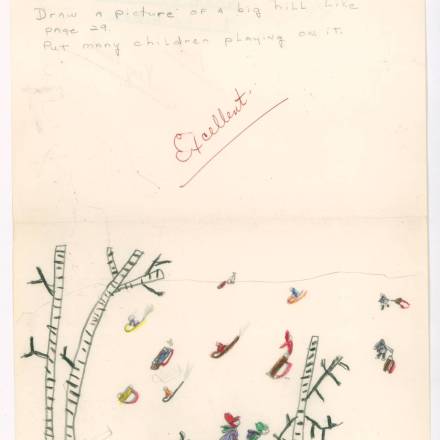 Draw a picture of a big hill like
page 29.
Put many children playing on it.
Excellent.